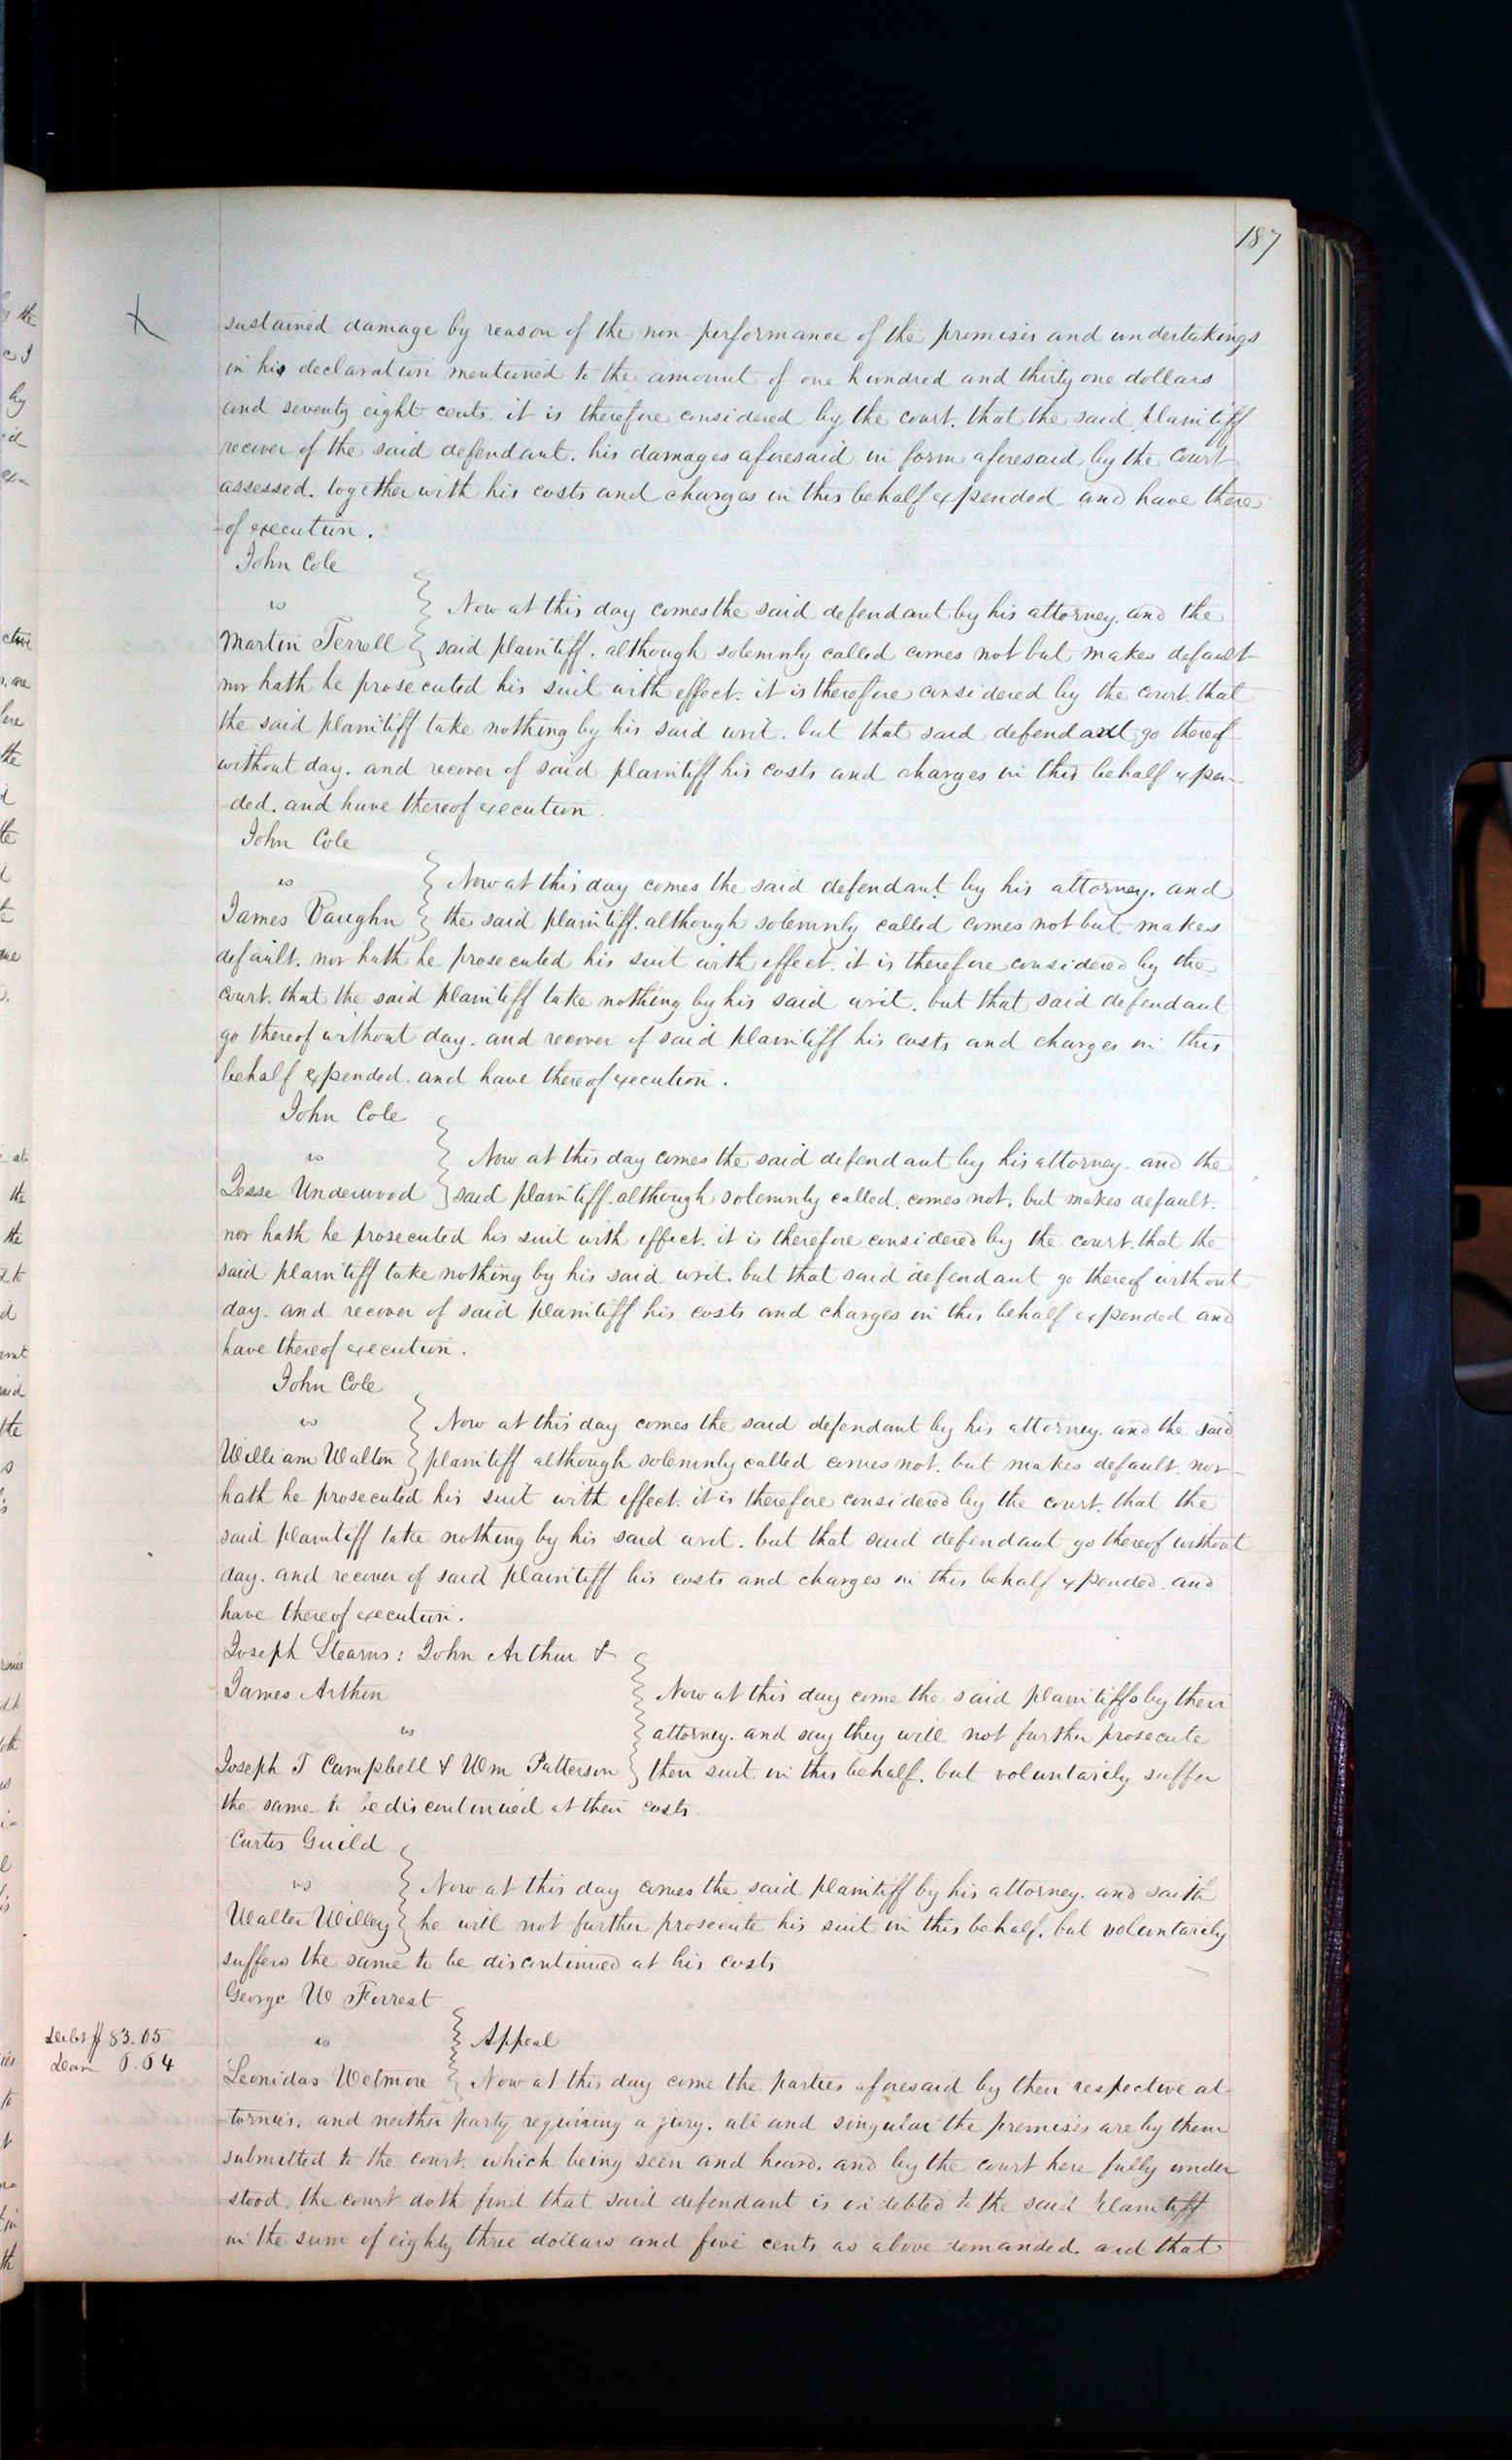 187
sustained damage by reason of the non performance of the premises and undertakings
in his declaration mentioned to the amount of one hundred and thirty one dollars
and seventy eight cents. it is therefore considered by the court. that the said plaintiff
recover of the said defendant. his damages aforesaid in form aforesaid by the court
assessed. together with his costs and charges in this behalf expended and have there
of execution.
John Cole
vs
Martin Terrell
Now at this day comes the said defendant by his attorney. and the
said plaintiff. although solemnly called comes not but makes default
nor hath he prosecuted his suit with effect. it is therefore considered by the court. that
the said plaintiff take nothing by his said writ. but that said defendant go thereof
without day. and recover of said plaintiff his costs and charges in this behalf expen-
ded. and have thereof execution.
John Cole
vs
James Vaughn
Now at this day comes the said defendant by his attorney. and
the said plaintiff. although solemnly called comes not but makes
default. nor hath he prosecuted his suit with effect. it is therefore considered by the
court. that the said plaintiff take nothing by his said writ. but that said defendant
go thereof without day. and recover of said plaintiff his costs and charges in this
behalf expended. and have thereof execution.
John Cole
vs
Jesse Underwood
Now at this day comes the said defendant by his attorney. and the
said plaintiff. although solemnly called. comes not. but makes default.
nor hath he prosecuted his suit with effect. it is therefore considered by the court. that the
said plaintiff take nothing by his said writ. but that said defendant go thereof without
day. and recover of said plaintiff his costs and charges in this behalf expended and
have thereof execution.
John Cole
vs
William Walton
Now at this day comes the said defendant by his attorney. and the said
plaintiff although solemnly called comes not. but makes default. nor
hath he prosecuted his suit with effect. it is therefore considered by the court. that the
said plaintiff take nothing by his said writ. but that said defendant go thereof without
day. and recover of said plaintiff his costs and charges in this behalf expended. and
have thereof execution.
Joseph Stearns: John Arthur &
James Arthur
vs
Joseph T Campbell & Wm Patterson
Now at this day come the said plaintiffs by their
attorney. and say they will not further prosecute
their suit in this behalf. but voluntarily suffer
the same to be discontinued at their costs.
Curtis Guild
vs
Walter Willey
Now at this day comes the said plaintiff by his attorney. and saith
he will not further prosecute his suit in this behalf. but voluntarily
suffers the same to be discontinued at his costs
George W Forrest
vs
Leonidas Wetmore
Appeal
Debt $83.05
Dam 6.64
Now at this day come the parties aforesaid by their respective at-
tornies. and neither party requiring a jury. all and singular the premises are by them
submitted to the court. which being seen and heard. and by the court here fully under
stood. the court doth find that said defendant is indebted to the said plaintiff
in the sum of eighty three dollars and five cents as above demanded. and that